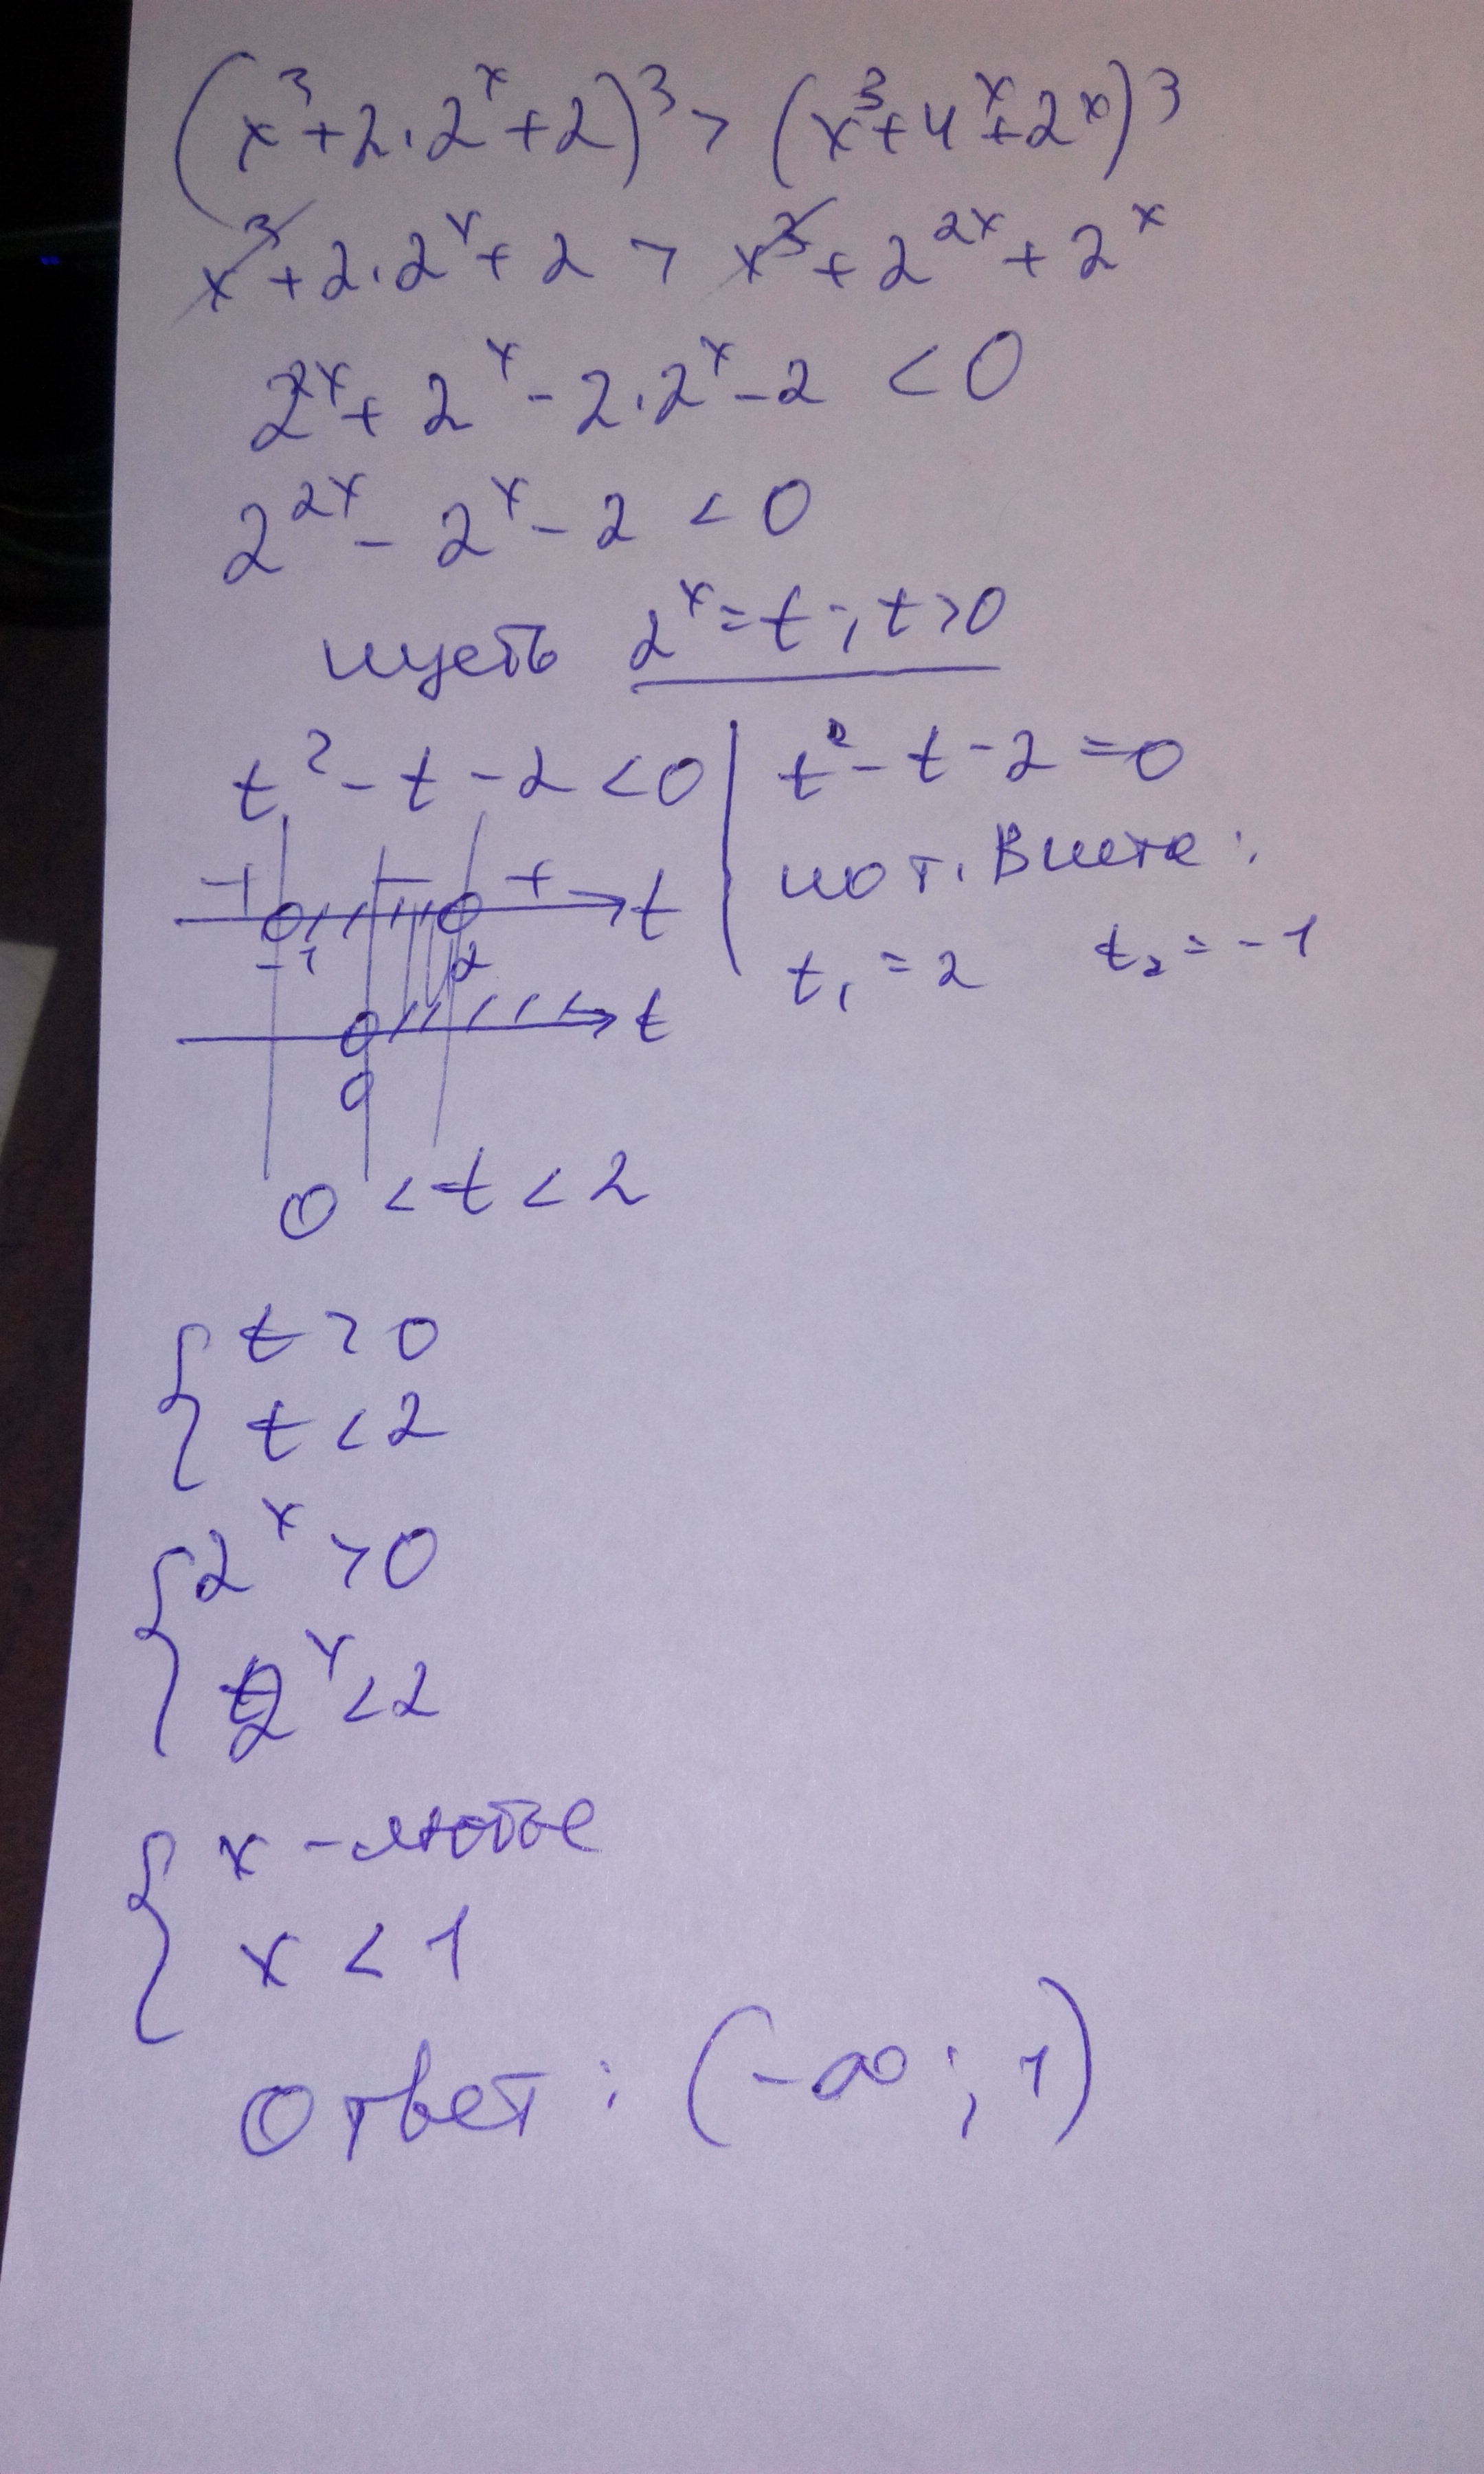 (x³+2·2ˣ+2)³ > (x³+4ˣ+2ˣ)³
x³+2·2ˣ+2 > x³+2²ˣ+2ˣ
2²ˣ+2ˣ-2·2ˣ-2 < 0
2²ˣ-2ˣ-2 < 0
пусть 2ˣ=t; t>0
t²-t-2<0 | t²-t-2=0
по т. Виета:
t₁=2 t₂=-1
+ - + t
-1 2
t
0
0 < t < 2
{ t > 0
t < 2
{ 2ˣ > 0
2ˣ < 2
{ x - любое
x < 1
Ответ: (-∞; 1)